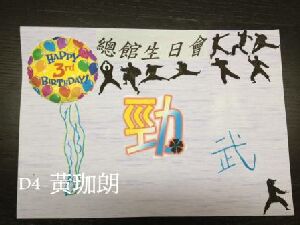 總館生日會
HAPPY
3rd
BIRTHDAY!
勁
武
D4 黃珈朗